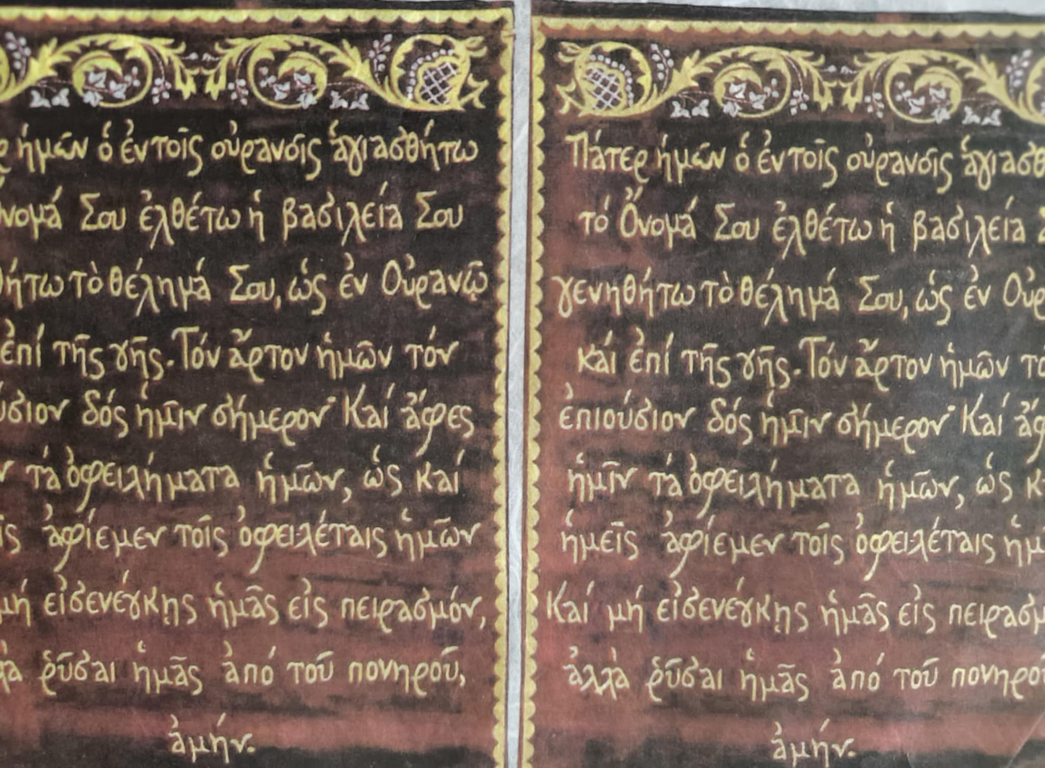 ρ ἡμῶν ὁ ἐν τοῖς οὐρανοῖς ἁγιασθήτω
νομά Σου ἐλθέτω ἡ βασιλεία Σου
θήτω τὸ θέλημά Σου, ὡς ἐν Οὐρανῷ
ἐπί τῆς γῆς. Τόν ἄρτον ἡμῶν τόν
ύσιον δός ἡμῖν σήμερον· Καί ἄφες
ν τά ὀφειλήματα ἡμῶν, ὡς καί
ῖς ἀφίεμεν τοῖς ὀφειλέταις ἡμῶν
μή εἰσενέγκῃς ἡμᾶς εἰς πειρασμόν,
λὰ ῥῦσαι ἡμᾶς ἀπό τοῦ πονηροῦ,
ἀμήν.
Πάτερ ἡμῶν ὁ ἐν τοῖς οὐρανοῖς ἁγιασθ
τό Ὄνομά Σου ἐλθέτω ἡ βασιλεία Σ
γενηθήτω τὸ θέλημά Σου, ὡς ἐν Οὐρ
καί ἐπί τῆς γῆς. Τόν ἄρτον ἡμῶν τό
ἐπιούσιον δός ἡμῖν σήμερον· Καί ἄφ
ἡμῖν τά ὀφειλήματα ἡμῶν, ὡς κ
ἡμεῖς ἀφίεμεν τοῖς ὀφειλέταις ἡμ
Καί μή εἰσενέγκῃς ἡμᾶς εἰς πειρασμ
ἀλλὰ ῥῦσαι ἡμᾶς ἀπό τοῦ πονηροῦ
ἀμήν.